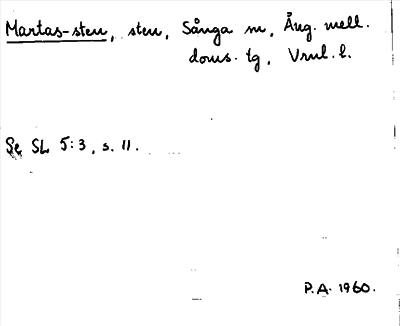 Martas-sten, sten, Sånga sn, Ång. mell.
doms. lg, Vrnl. l.
Se SL 5:3, s. 11.
P.A. 1960.